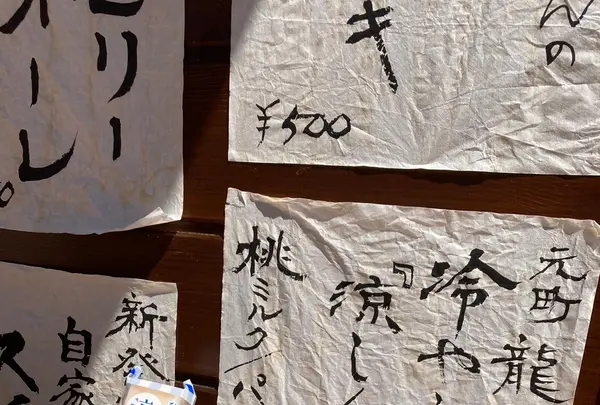 リー
ーレ
んの
キ
¥500
元町
龍
冷や
『涼し
桃ミルク/パ
新発
自家
ス